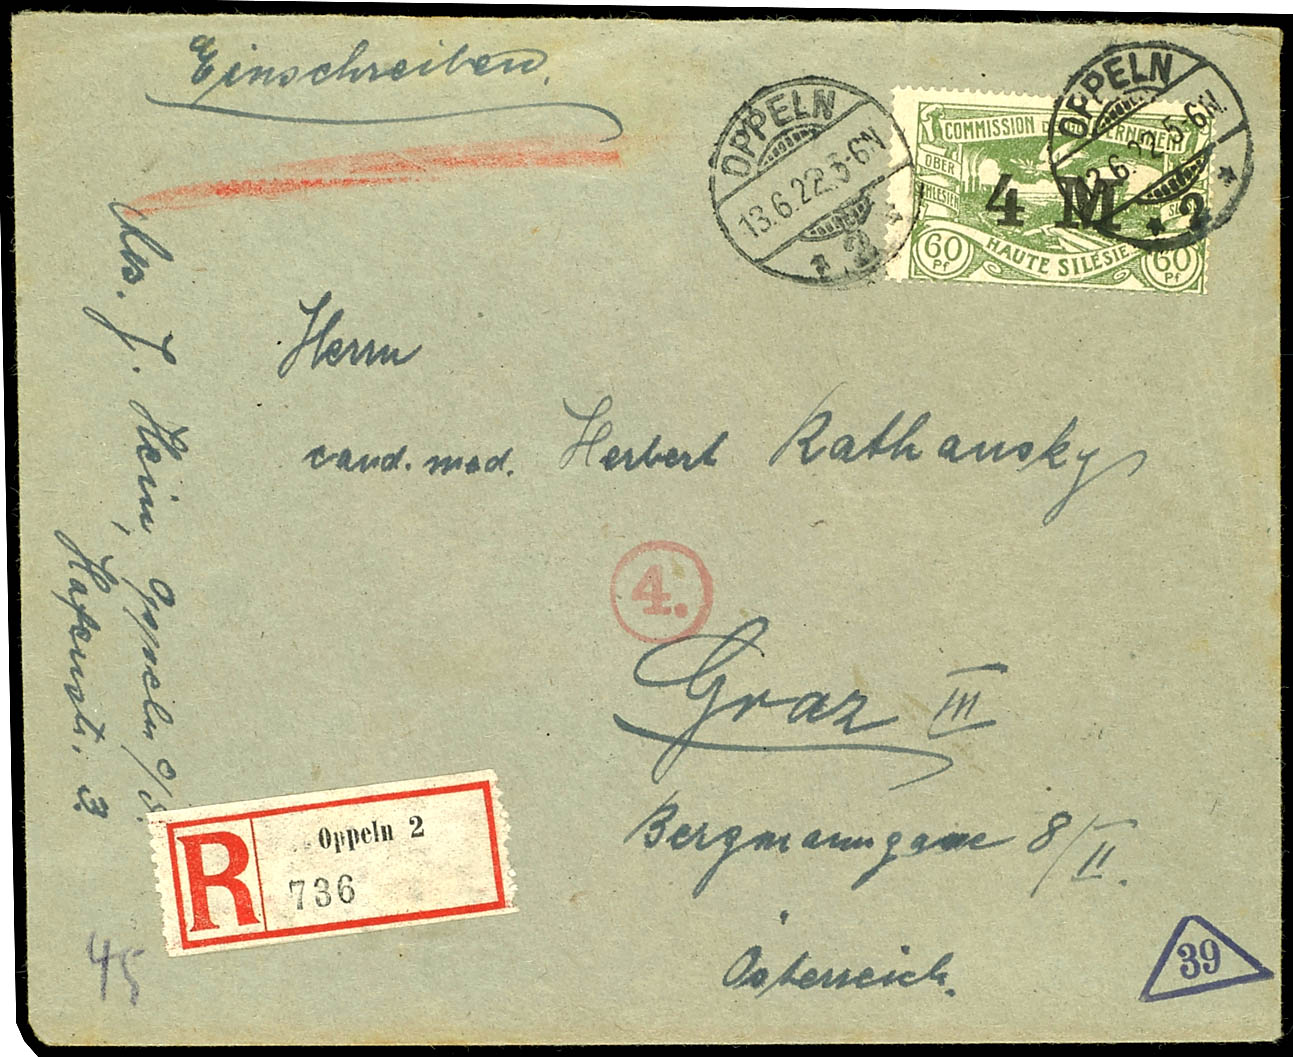 Einschreiben.
OPPELN
13.6.22.5-6N.
* 2 *
OPPELN
13.6.22.5-6N.
* 2 *
COMMISSION DE GOUVERNEMENT
OBER
SCHLESIEN
4 M
60
Pf
HAUTE SILÉSIE
60
Pf
Abs. J. Hein, Oppeln O/S.
Hafenstr. 3
Herrn
cand. med. Herbert Rathausky
4.
Graz III
Bergmanngasse 8/II.
Österreich.
R
Oppeln 2
736
45
39